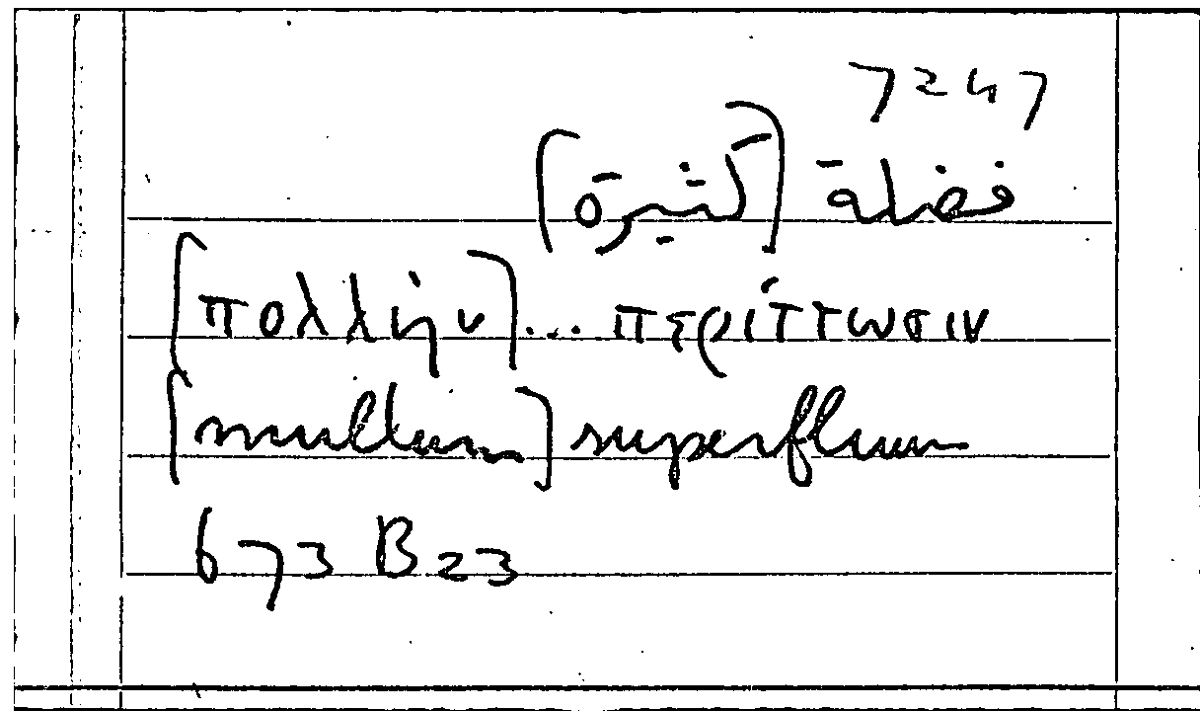 7247
فضلةً [كثيرةً]
[πολλὴν]... περίττωσιν
[multum] superfluum
673 B 23